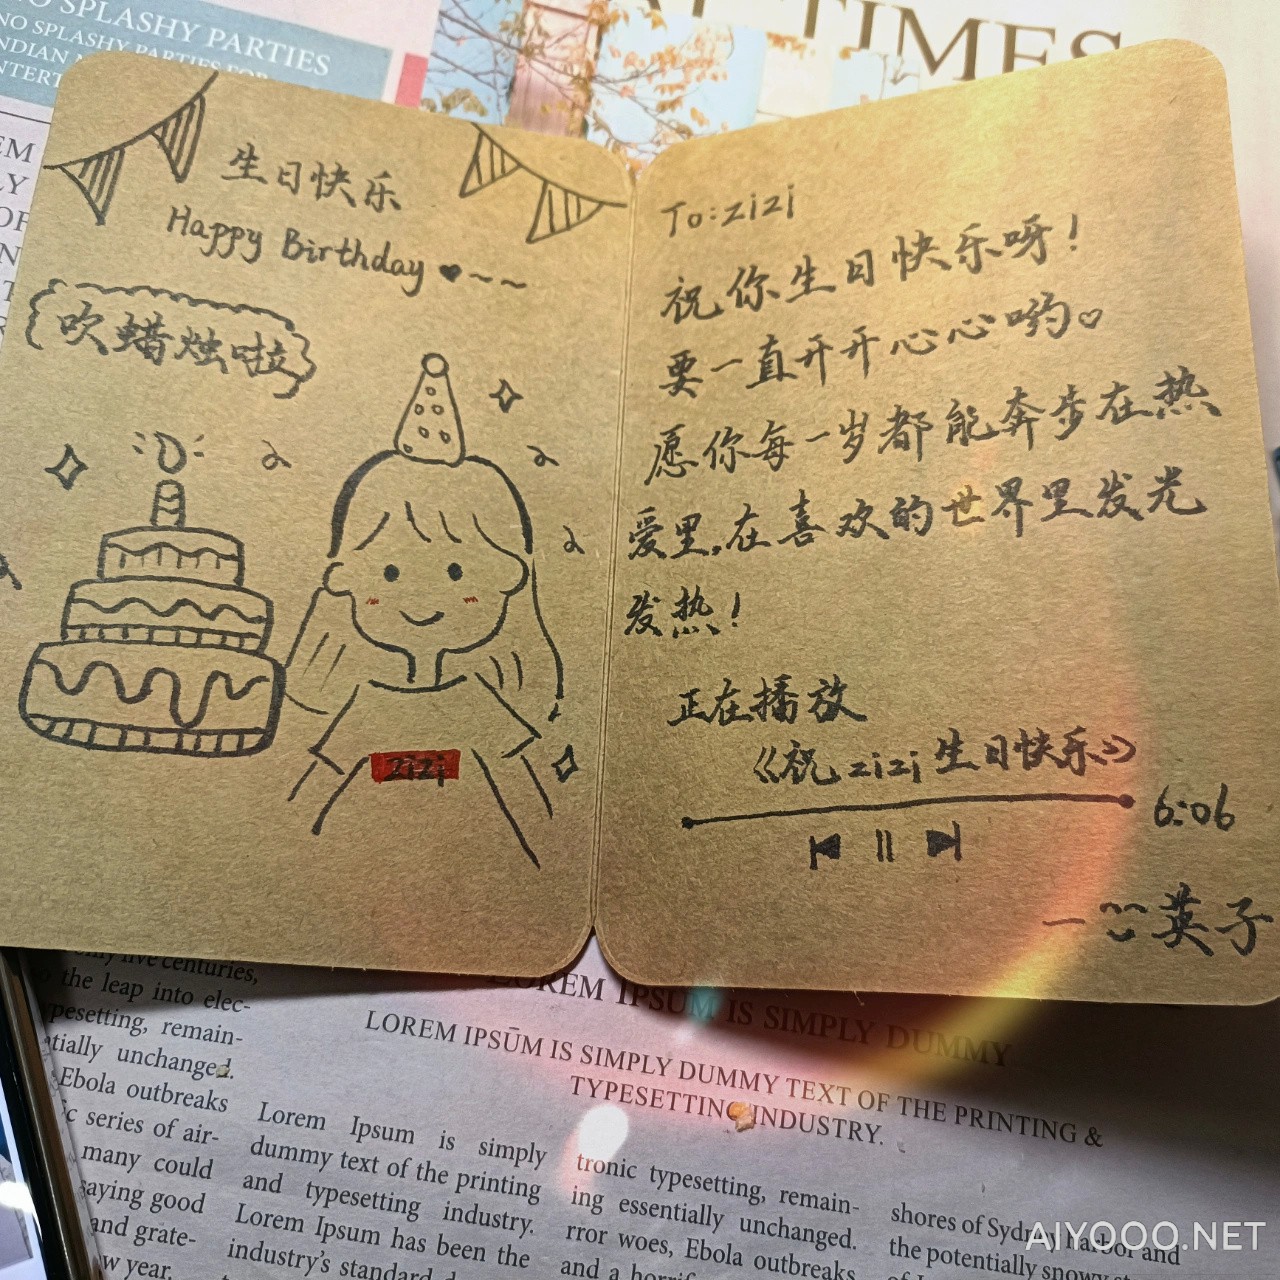 NO SPLASHY PARTIES
NO SPLASHY PARTIES FOR
TIMES
生日快乐
Happy Birthday ♥~~
吹蜡烛啦
zizi
To:zizi
祝你生日快乐呀！
要一直开开心心哟♡
愿你每一岁都能奔步在热
爱里,在喜欢的世界里发光
发热！
正在播放
《祝zizi生日快乐》
6:06
一 英子
LOREM IPSUM IS SIMPLY DUMMY
LOREM IPSŪM IS SIMPLY DUMMY TEXT OF THE PRINTING &
TYPESETTING INDUSTRY.
only five centuries,
the leap into elec-
typesetting, remain-
tially unchanged.
Ebola outbreaks
ic series of air-
many could
saying good
and grate-
w year.
Lorem Ipsum is simply
dummy text of the printing
and typesetting industry.
Lorem Ipsum has been the
industry's standard
tronic typesetting, remain-
ing essentially unchanged.
rror woes, Ebola outbreaks
and a
shores of Sydney harbor and
the potentially snowy
AIYOOO.NET